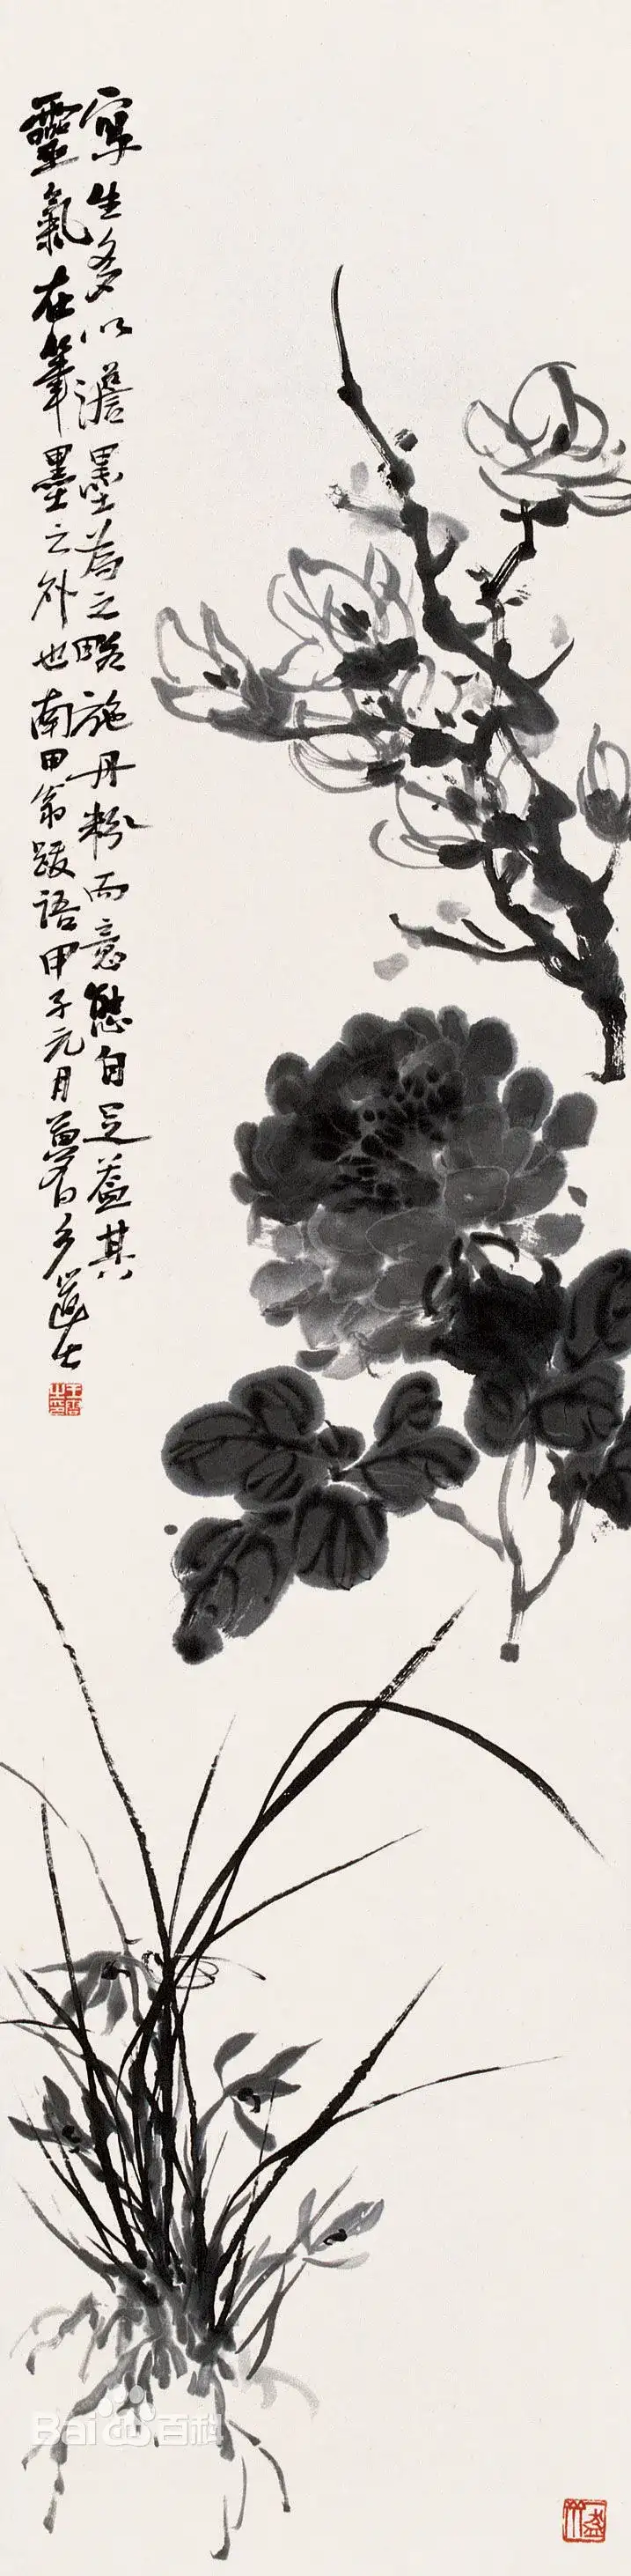 寫生多以澹墨為之略施丹粉而意態自足蓋其
靈氣在筆墨之外也南田翁跋語甲子元月夢白道士
王雲之印
Bai百科